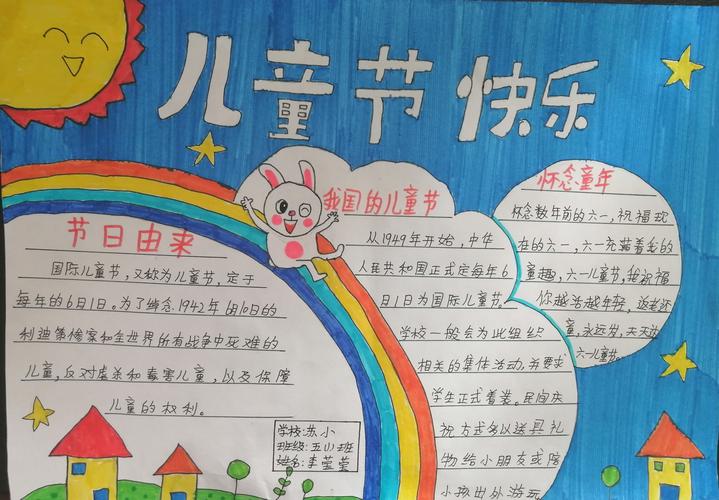 儿童节 快乐
节日由来
国际儿童节,又称为儿童节,定于
每年的6月1日。为了悼念1942年6月10日的
利迪策惨案和全世界所有战争中死难的
儿童,反对虐杀和毒害儿童,以及保障
儿童的权利。
学校:苏小
班级:五(1)班
姓名:李莹莹
我国的儿童节
从1949年开始,中华
人民共和国正式定每年6
月1日为国际儿童节。
学校一般会为此组织
相关的集体活动,并要求
学生正式着装。民间庆
祝方式多以送其礼
物给小朋友或陪
小孩出外游玩
怀念童年
怀念数年前的六一,祝福现
在的六一,六一充满着我的
童趣,六一儿童节,我祝福
你越活越年轻,返老还
童,永远发,天天过
六一儿童节。